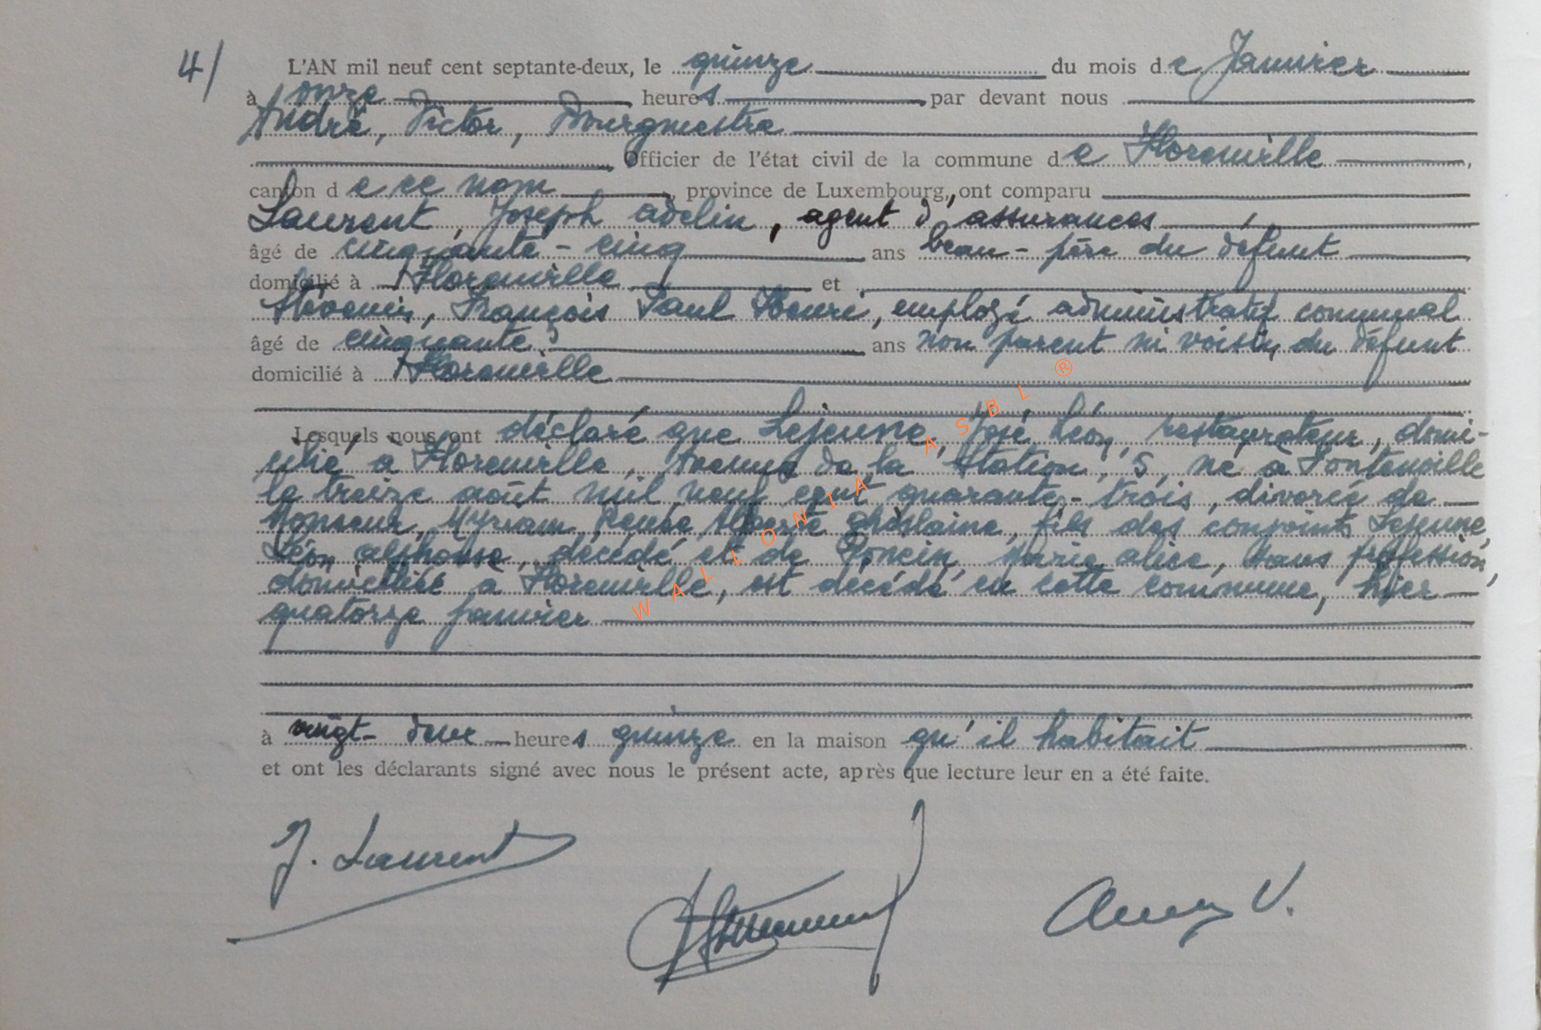 4/ L'AN mil neuf cent septante-deux, le quinze du mois de Janvier
à onze heures par devant nous
André, Victor, Bourgmestre
Officier de l'état civil de la commune de Florenville,
canton de ce nom, province de Luxembourg, ont comparu
Laurent, Joseph adelin, agent d'assurances
âgé de cinquante-cinq ans beau-père du défunt
domicilié à Florenville et
Stévenin, François Paul Henri, employé administratif communal
âgé de cinquante ans non parent ni voisin du défunt
domicilié à Florenville
Lesquels nous ont déclaré que Lejeune, José Léon, restaurateur, domi-
cilié à Florenville, Avenue de la Station, 5, né à Fontenoille
le treize août mil neuf cent quarante-trois, divorcé de
Monseur, Myriam Renée Alberte Ghislaine, fils des conjoints Lejeune,
Léon alphonse, décédé et de Poncin, Marie alice, sans profession,
domiciliée à Florenville, est décédé en cette commune, hier
quatorze janvier
à vingt-deux heures quinze en la maison qu'il habitait
et ont les déclarants signé avec nous le présent acte, après que lecture leur en a été faite.
J. Laurent
V.
WALLONIA ASBL ®